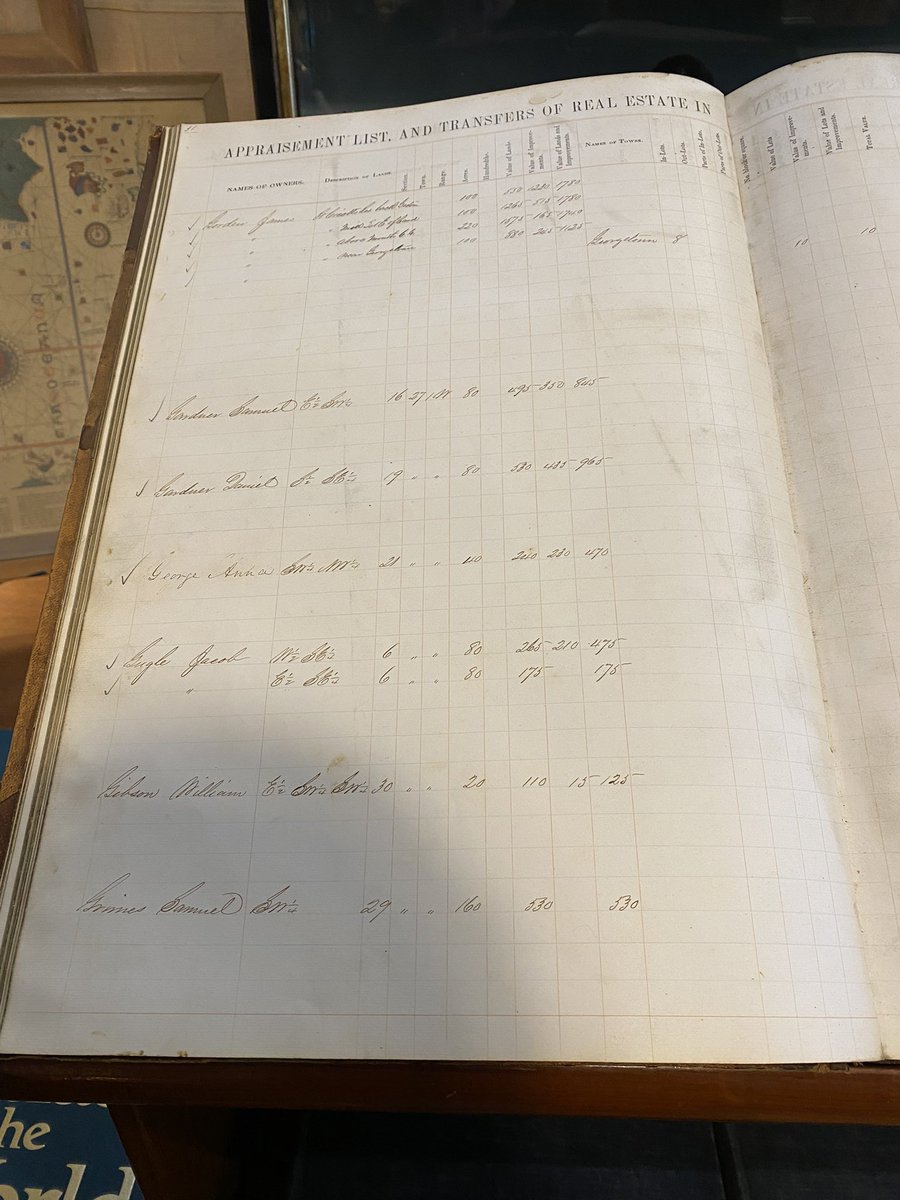 APPRAISEMENT LIST, AND TRANSFERS OF REAL ESTATE IN
NAMES OF OWNERS. DESCRIPTION OF LANDS. Section. Town. Range. Acres. Hundredths. Value of Lands. Value of Improvements. Value of Lands and Improvements. NAMES OF TOWNS. In-Lots. Out-Lots. Parts of In-Lots. Parts of Out-Lots. Value of Lots Value of Improvements. Value of Lots and Improvements. Total Value.
Gorden James 100 530 1250 1780
" 100 1265 515 1780
" above mouth 220 1575 165 1740
" near Georgetown 100 880 245 1125
" Georgetown 8 10 10
Gardner Samuel E½ SW¼ 16 27 1W 80 495 350 845
Gardner Daniel S½ SE¼ 19 " " 80 530 435 965
George Anna SW¼ NW¼ 21 " " 40 240 230 470
Gugle Jacob W½ SE¼ 6 " " 80 265 210 475
" E½ SE¼ 6 " " 80 175 175
Gibson William E½ SW¼ SW¼ 30 " " 20 110 15 125
Grimes Samuel SW¼ 29 " " 160 530 530
he
orld